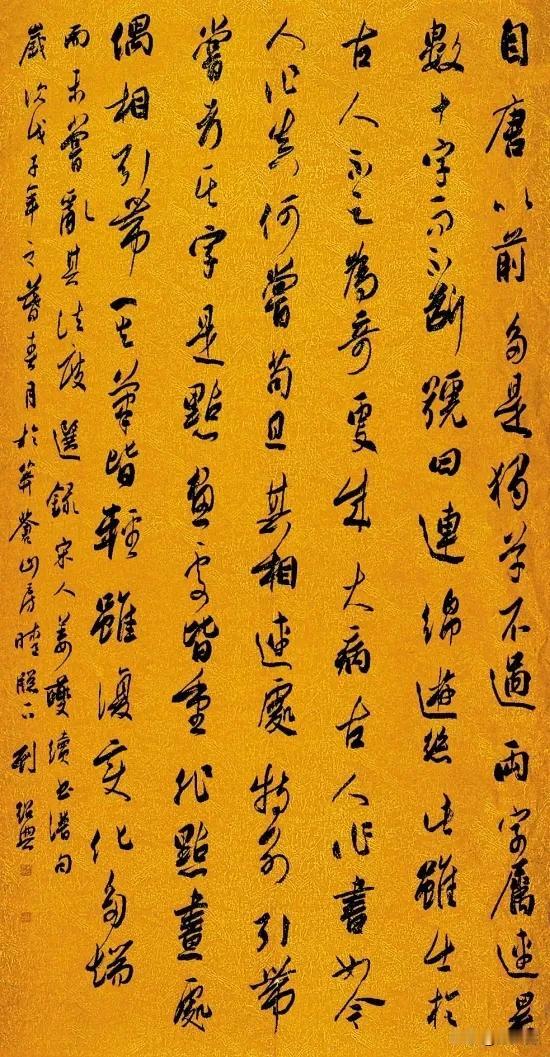 自唐以前多是獨草不過兩字屬連累
數十字而不斷號曰連綿遊絲此雖出於
古人不足為奇更成大病古人作書如今
人作真何嘗苟且其相連處特是引帶
嘗考其字是點畫處皆重非點畫處
偶相引帶其筆皆輕雖復變化多端
而未嘗亂其法度 選錄宋人姜夔續書譜句
歲次戊子年之暮春月於莽蒼山房晴牕下 劉紹典